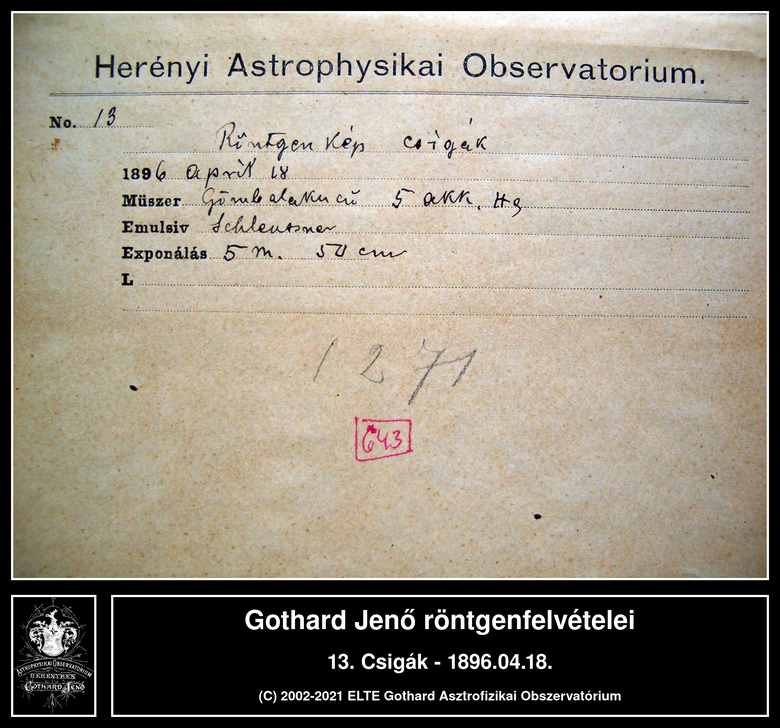 Herényi Astrophysikai Observatorium.
No. 13
Röntgen kép csigák
1896 april 18
Műszer Gömbalaku cső 5 akk. Hg
Emulsiv Schleussner
Exponálás 5 m. 50 cm
L
1271
643
ASTROPHYSIKAI OBSERVATORIUM
HERÉNYBEN
GOTHARD JENŐ
Gothard Jenő röntgenfelvételei
13. Csigák - 1896.04.18.
(C) 2002-2021 ELTE Gothard Asztrofizikai Obszervatórium